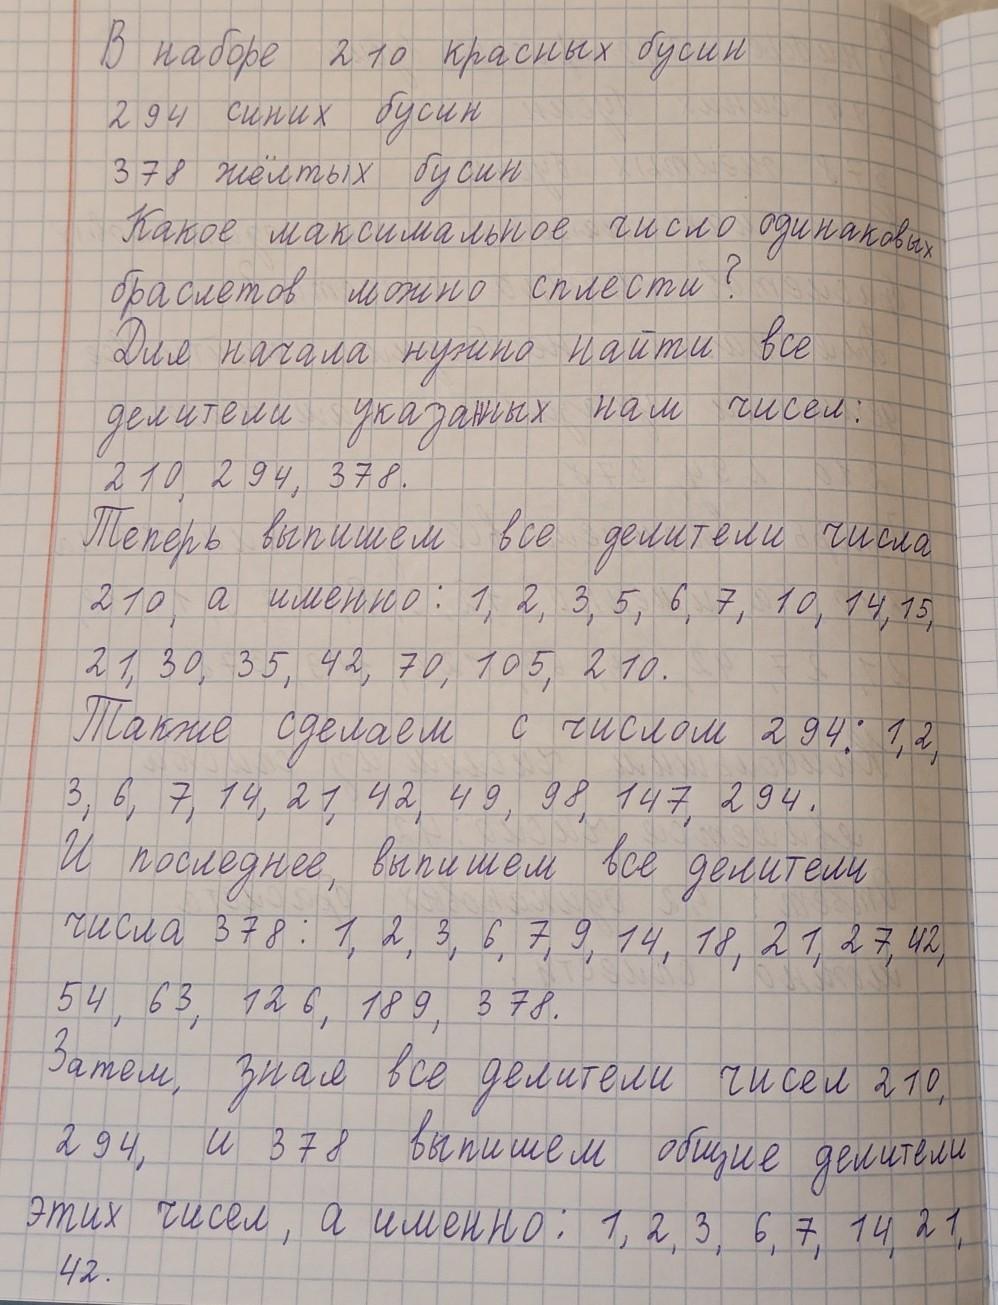 В наборе 210 красных бусин
294 синих бусин
378 жёлтых бусин
Какое максимальное число одинаковых
браслетов можно сплести?
Для начала нужно найти все
делители указанных нам чисел:
210, 294, 378.
Теперь выпишем все делители числа
210, а именно: 1, 2, 3, 5, 6, 7, 10, 14, 15,
21, 30, 35, 42, 70, 105, 210.
Также сделаем с числом 294: 1, 2,
3, 6, 7, 14, 21, 42, 49, 98, 147, 294.
И последнее, выпишем все делители
числа 378: 1, 2, 3, 6, 7, 9, 14, 18, 21, 27, 42,
54, 63, 126, 189, 378.
Затем, зная все делители чисел 210,
294, и 378 выпишем общие делители
этих чисел, а именно: 1, 2, 3, 6, 7, 14, 21,
42.